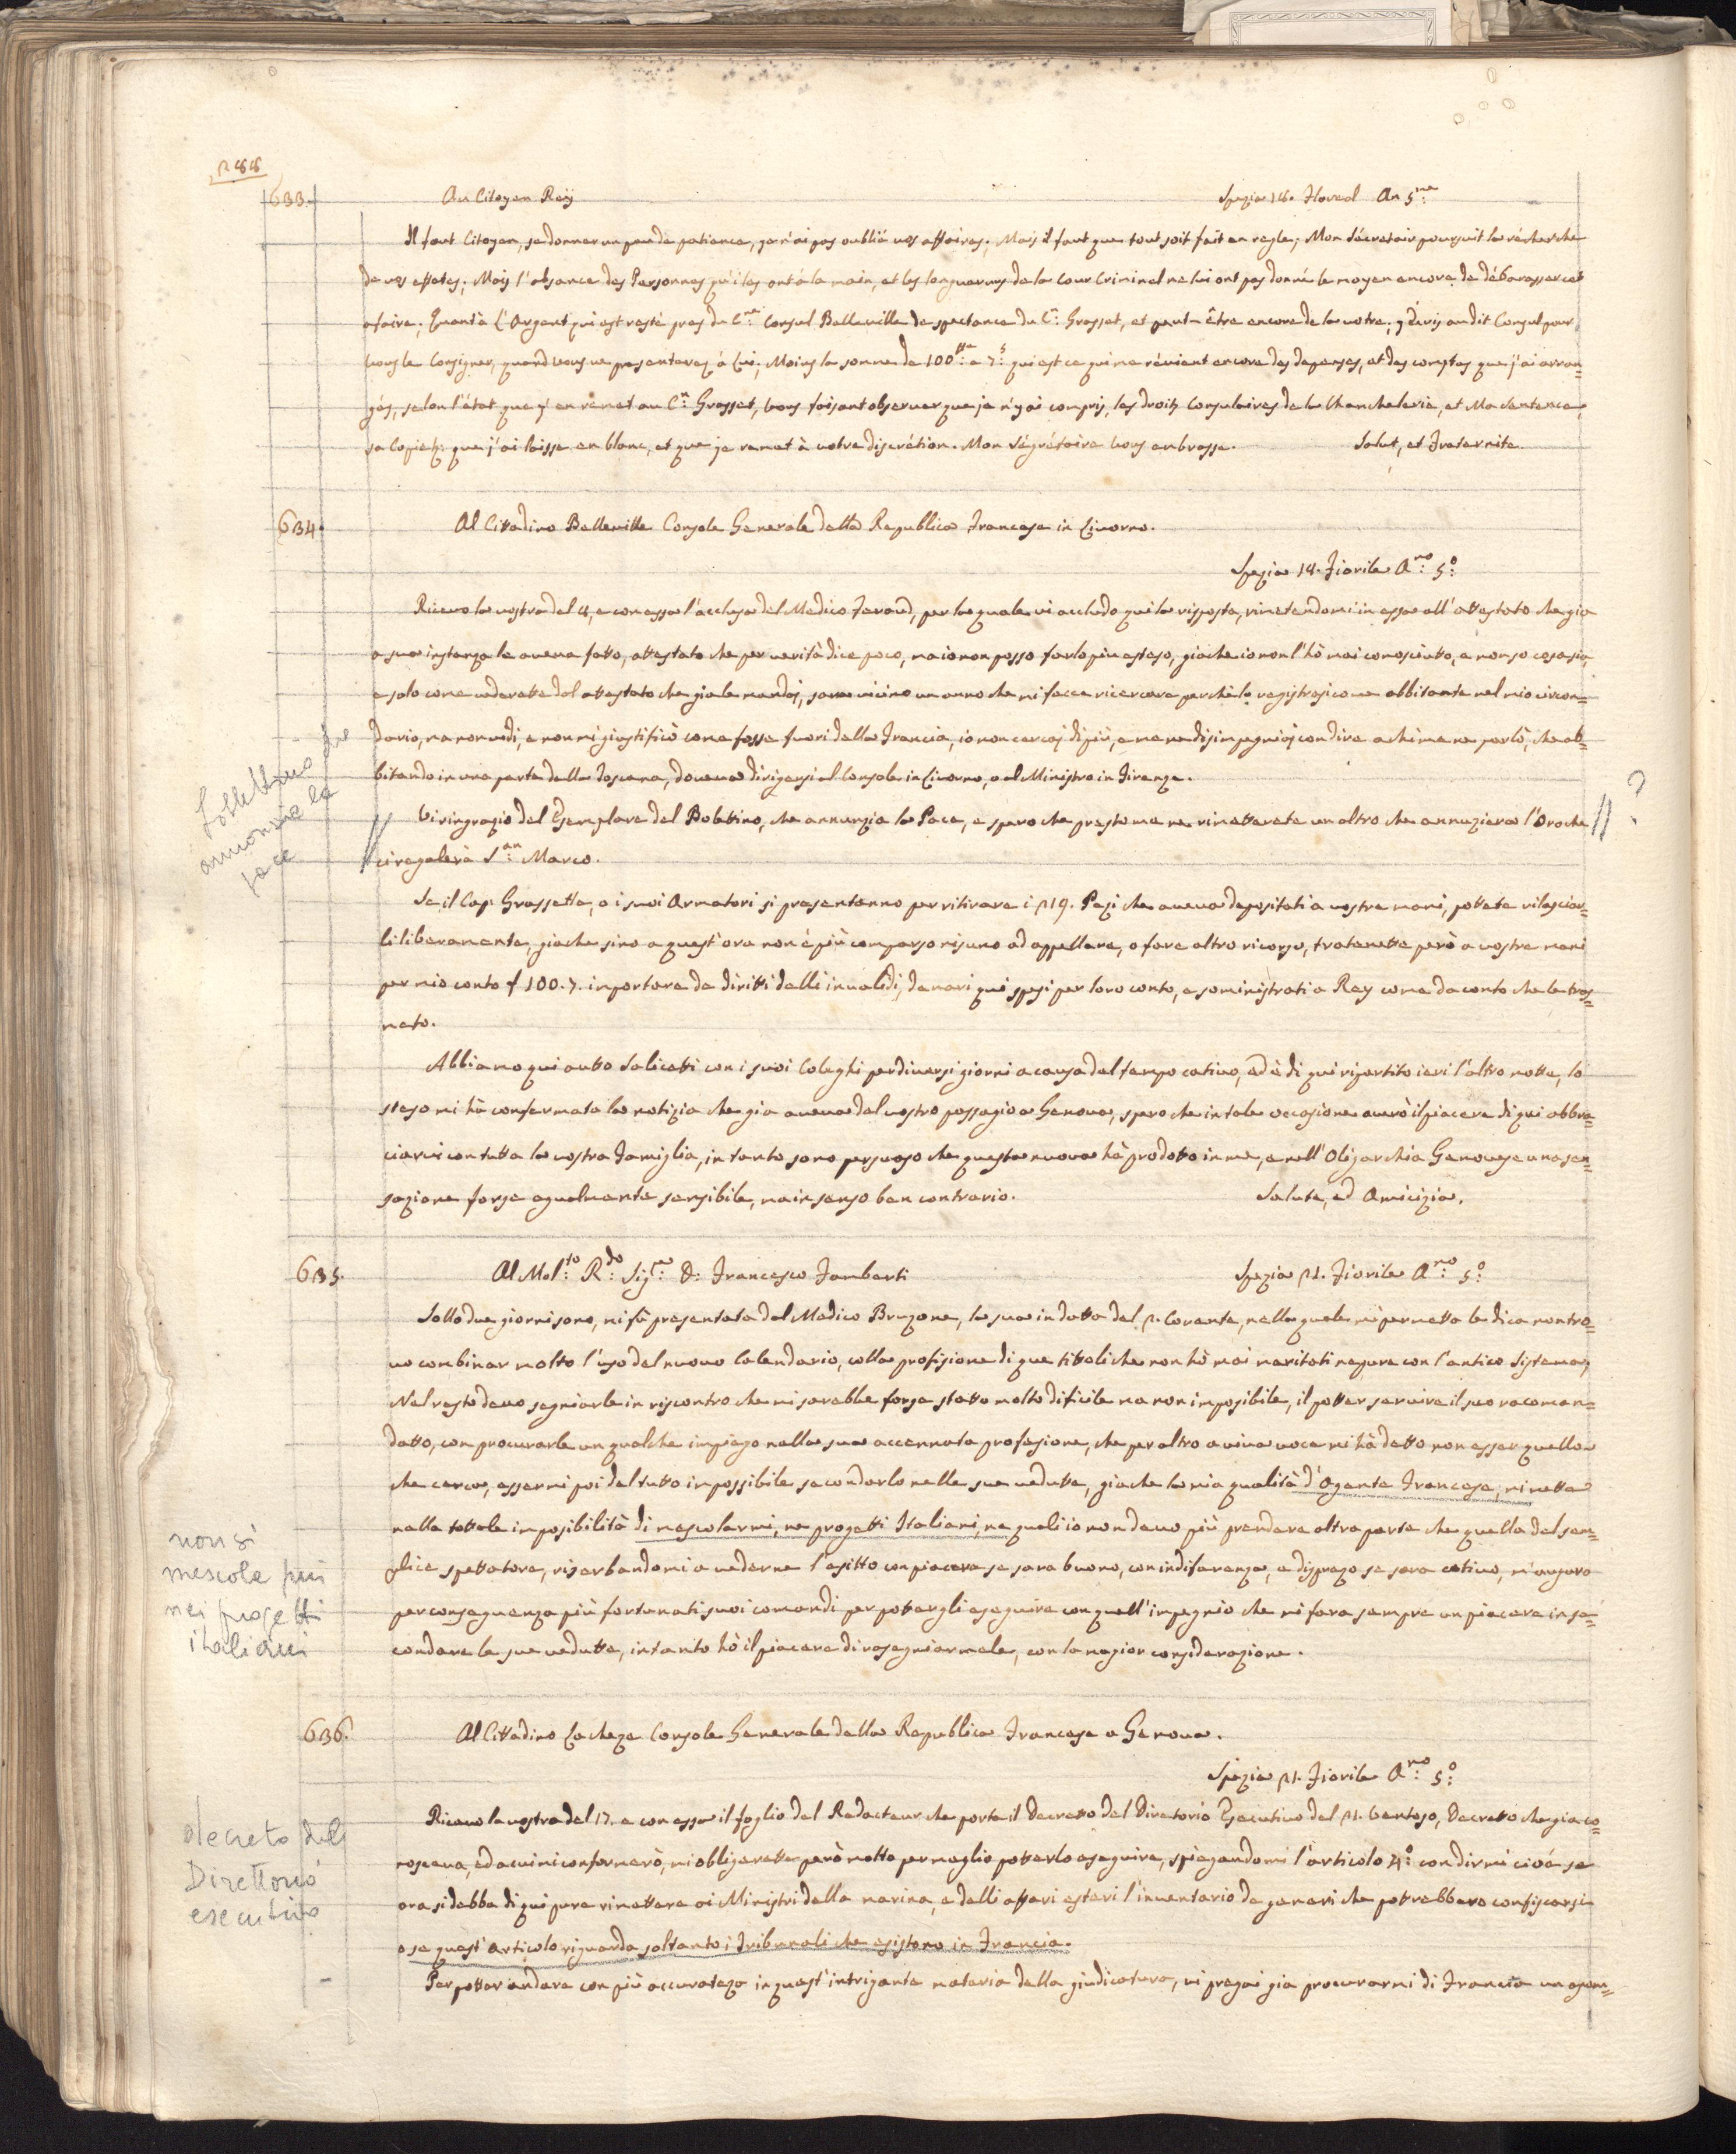 288
633. Au Citoyen Rey Spezia 18. Floreal An 5.me
Il faut Citoyen, se donner un peu de patience, je n'ai pas oublié vos affaires; Mais il faut que tout soit fait en regle; Mon Sécretair poursuit la récherche
de vos effates; Mais l'absance des Personnes qu'iles ont à la main, et les longueurs de la Cour Criminel ne lui ont pas donné le moyen encore de débarasser cet
afaire. Quant à L'Argent qui est resté pres du C.en Consul Belleville de spectance du C.n Grosset, et peut-être encore de la votre; j'écris au dit Consul pour
vous le Consigner, quand vous ve presenterez à Lui; Moins la somme de 100 e 7 qui est ce qui me révient encore des depenses, et des comptes que j'ai arran=
gés, selon l'état que j'en remet au C.n Grosset, vous faisant observer que je n'y ai compris, les droits Consulaires de la Chanchelerie, et Ma Sentence
sa Copie que j'ai laisse en blanc, et que je remet à votre discrétion. Mon Ségrétaire vous enbrasse. Salut, et Fraternite.
634. Al Cittadino Belleville Console Generale della Republica Francese in Livorno.
Spezia 18. Fiorile A.no 5.o
Ricevo la vostra del 4, e con essa l'acclusa del Medico Feraud, per la quale vi accludo qui la risposta, rimetendomi in essa all'attestato che gia
a sua instanza le aveva fatto, attestato che per verità dice poco, ma io non posso farlo più esteso, giache io non l'hò mai conosciutto, e non so cosa sia,
e solo come vederette dal attestato che gia le mandai, sarra vicino un anno che mi facce ricercare perchè lo registrasi come abbitante nel mio circon=
dario, ma non vidi, e non mi giustificò come fosse fuori della Francia, io non cercai di più, e me ne disimpegniai con dire a chi me ne parlò, che ab=
bitando in una parte della Toscana, doveva dirigersi al Console in Livorno, o al Ministro in Firenze.
Vi ringrazio del Esemplare del Bolettino, che annunzia la Pace, e spero che presto me ne rimetterete un altro che annuziera l'Oro che
ci regalerà S.an Marco.
Se il Cap. Grossette, o i suoi Armatori si presentanno per ritirare i 219. Pezi che aveva depositati a vostre mani, pottete rilasciar=
li liberamente, giache sino a quest'ora non é più comparso nisuno ad appellare, o fare altro ricorso, trattenette però a vostre mani
per mio conto f 100.7. importare de diritti delli invalidi, denari qui spesi per loro conto, e soministrati a Rey come da conto che le tras=
meto.
Abbiamo qui autto Salicetti con i suoi Coleghi per diversi giorni a causa del tempo cativo, ed è di qui ripartito ieri l'altro notte, lo
steso mi hà confermata la notizia che gia aveva del vostro passagio a Genova, spero che in tale occasione averò il piacere di qui abbra=
ciarvi con tutta la vostra Famiglia, in tanto sono persuaso che questa nuova hà prodotto in me, e nell'Oligarchia Genovese una sen=
sazione forse egualmente sensibile, ma in senso ben contrario. Salute, ed Amicizia.
635. Al Mol.to R.do Sig.re D. Francesco Zamberti Spezia 21. Fiorile A.no 5.o
Sollo due giorni sono, mi fù presentata dal Medico Bruzone, la sua in datta del 2. Corente, nella quale mi permetta le dica non tro=
vo combinar molto l'uso del nuovo Calendario, colla profisione di que tittoli che non hò mai meritati nepure con l'antico Sistema;
Nel resto devo segniarle in riscontro che mi sarebbe forse statto molto dificile ma non imposibile, il potter servire il suo racoman=
datto, con procurarle un qualche impiego nella sua accennata profesione, che per altro a viva voce mi hà detto non esser quello
che cerca, essermi poi del tutto impossibile secondarlo nelle sue vedutte, giache la mia qualità d'Agente Francese, mi mette
nella tottale imposibilità di mescolarmi, ne progetti Italiani, ne quali io non devo più prendere altra parte che quella del sem=
plice spettatore, riserbandomi a vederne l'esitto con piacere se sara buono, con indiferenza, e disprezo se sara cativo, m'auguro
per conseguenza più fortunati suoi comandi per potergli eseguire con quell'impegnio che mi fara sempre un piacere in se=
condare le sue vedutte, in tanto hò il piacere di rasegniarmele, con la magior considerazione.
636. Al Cittadino La Cheze Console Generale della Republica Francese a Genova.
Spezia 21. Fiorile A.no 5.o
Ricevo la vostra del 17. e con essa il foglio del Redacteur che porta il Decretto del Diretorio Esecutivo del 21. Ventoso, Decretto che gia co=
nosceva, ed a cui mi conformerò, mi obligarette però molto per meglio potterlo eseguire, spiegandomi l'articolo 4.o con dirmi cioé se
ora si debba di qui pure rimettere ai Ministri della marina, e delli affari esteri l'inventario de generi che pottrebbero confiscarsi
o se quest'articolo riguarda soltanto i Tribunali che esistono in Francia.
Per potter andare con più accuratezo in quest'intrigante materia della giudicatura, vi pregai gia procurarmi di Francia un esem=
bollettino che
annonzia la
pace
?
non si
mescola più
nei progetti
italiani
decreto del
Direttorio
esecutivo